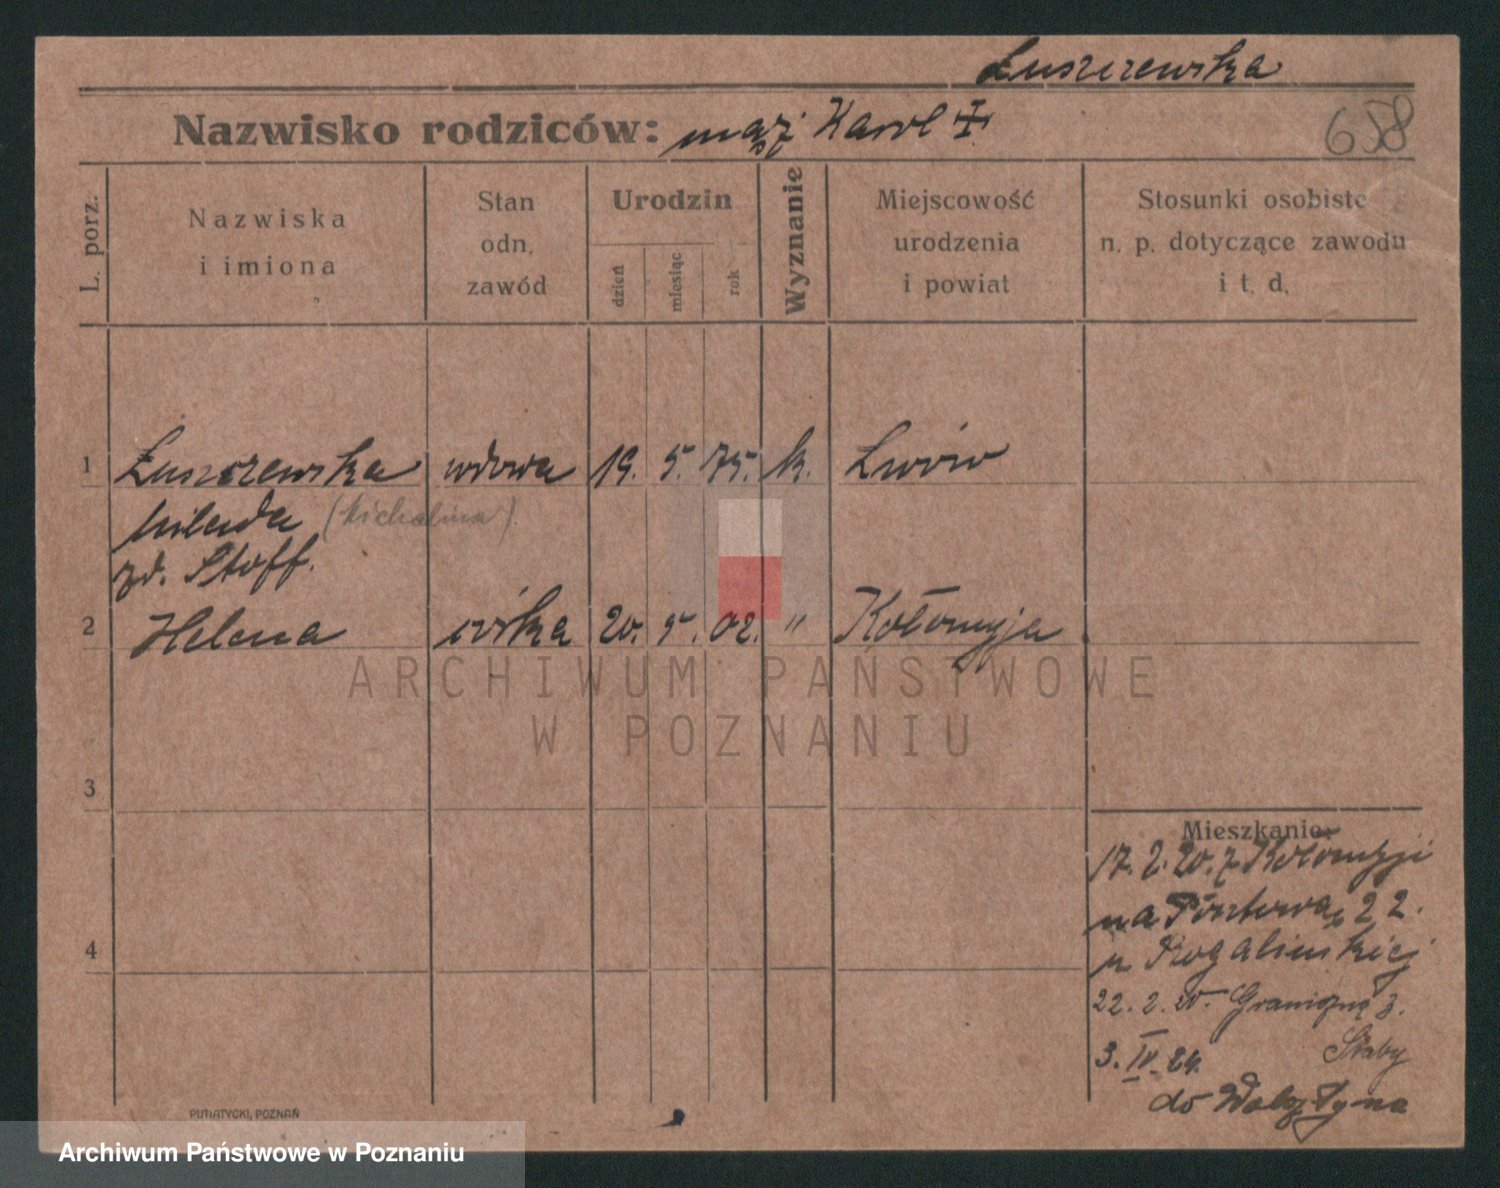 Łuszczewska
Nazwisko rodziców: mąż Karol
658
L. porz.
Nazwiska
i imiona
Stan
odn.
zawód
Urodzin
dzień
miesiąc
rok
Wyznanie
Miejscowość
urodzenia
i powiat
Stosunki osobiste
n. p. dotyczące zawodu
i t. d.
1 Łuszczewska wdowa 19. 5. 75. k. Lwów
Milada (Michalina)
zd. Stoff.
2 Helena córka 20. 5. 02. " Kołomyja
ARCHIWUM PAŃSTWOWE
W POZNANIU
3
Mieszkanie:
17. 2. 20. z Kołomyji
na 22.
u Rogalińskiej
4
22. 2. 20. Graniczną 3.
3. IV. 24. Słaby
do
PUTIATYCKI, POZNAŃ
Archiwum Państwowe w Poznaniu